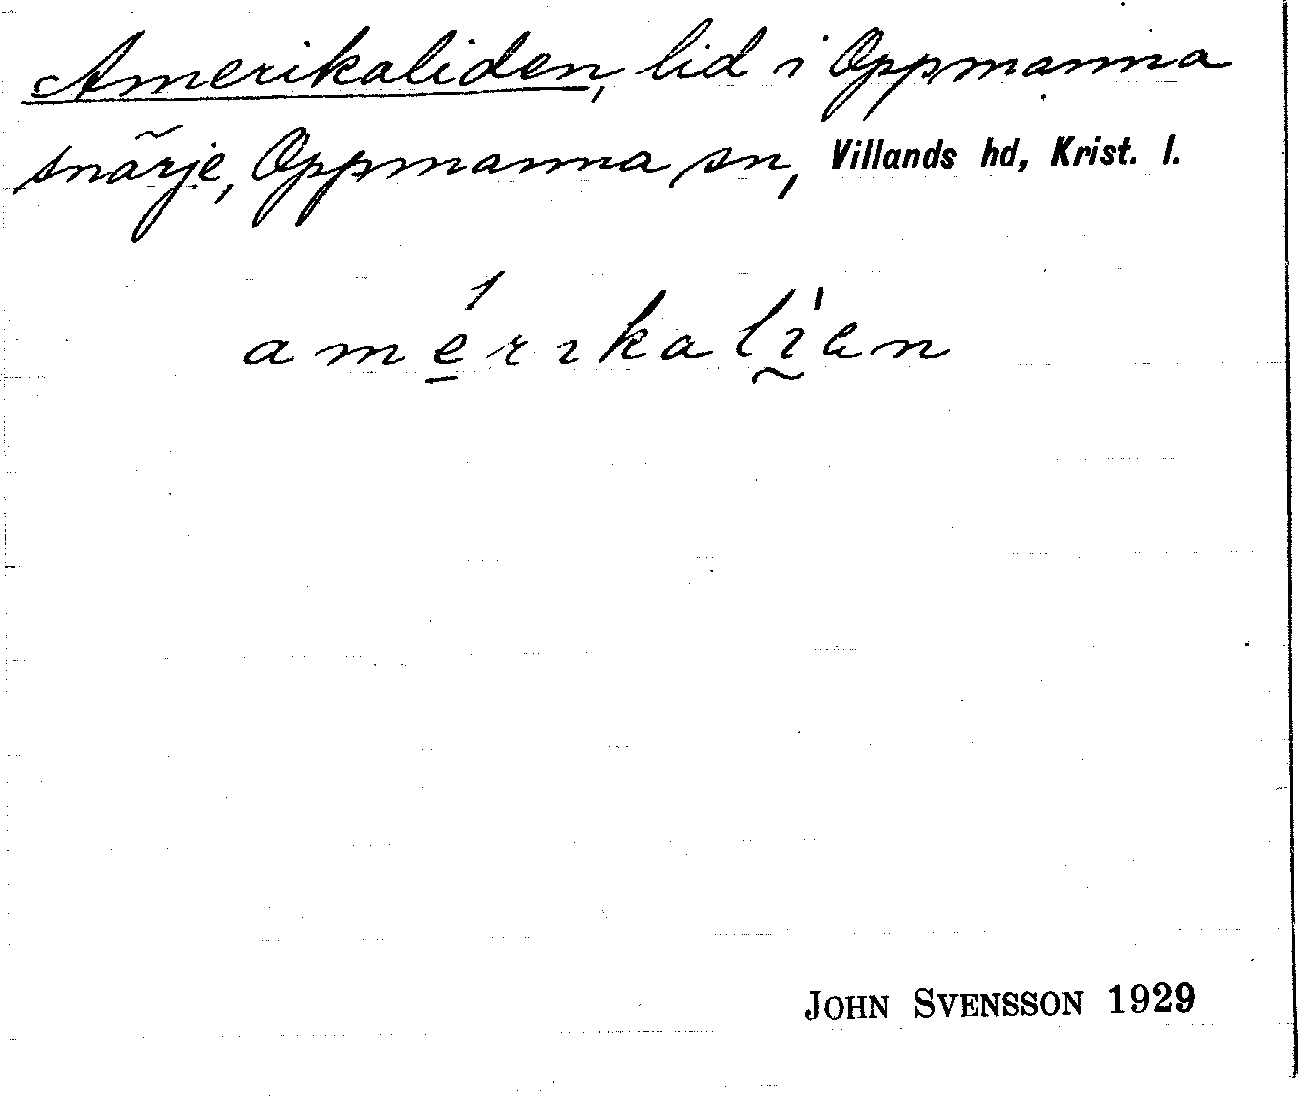 Amerikaliden, lid i Oppmanna
snärje, Oppmanna sn, Villands hd, Krist. l.
amérikalíen
JOHN SVENSSON 1929